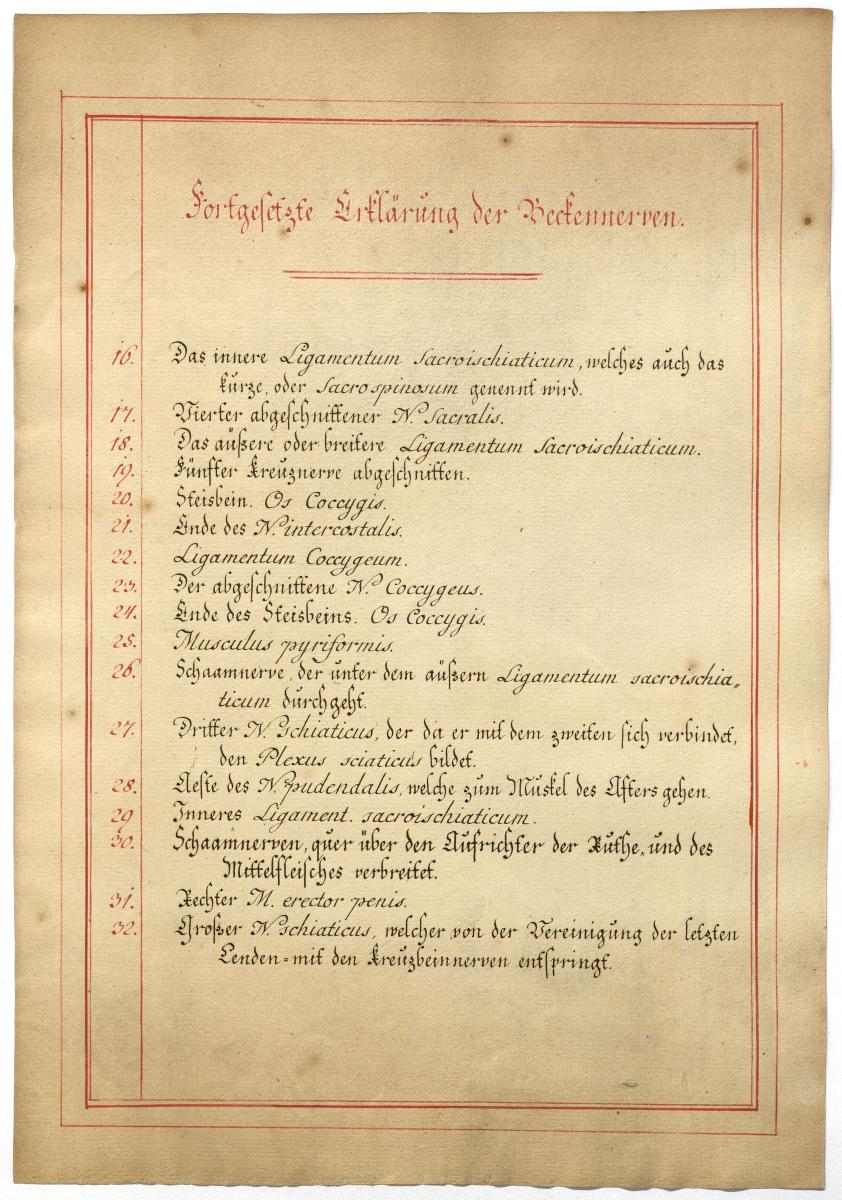 Fortgesetzte Erklärung der Beckennerven.
16. Das innere Ligamentum Sacroischiaticum, welches auch das
kurze, oder Sacrospinosum genennt wird.
17. Vierter abgeschnittener N. Sacralis.
18. Das äußere oder breitere Ligamentum Sacroischiaticum.
19. Fünfter Kreuznerve abgeschnitten.
20. Steisbein. Os Coccygis.
21. Ende des N. intercostalis.
22. Ligamentum Coccygeum.
23. Der abgeschnittene N. Coccygeus.
24. Ende des Steisbeins. Os Coccygis.
25. Musculus pyriformis.
26. Schaamnerve, der unter dem äußern Ligamentum sacroischia„
ticum durchgeht.
27. Dritter N. Ischiaticus, der da er mit dem zweiten sich verbindet,
den Plexus sciaticus bildet.
28. Aeste des N. pudendalis, welche zum Muskel des Afters gehen.
29 Inneres Ligament. sacroischiaticum.
30. Schaamnerven, quer über den Aufrichter der Ruthe, und des
Mittelfleisches verbreitet.
31. Rechter M. erector penis.
32. Großer N. Ischiaticus, welcher von der Vereinigung der letzten
Lenden=mit den Kreuzbeinnerven entspringt.